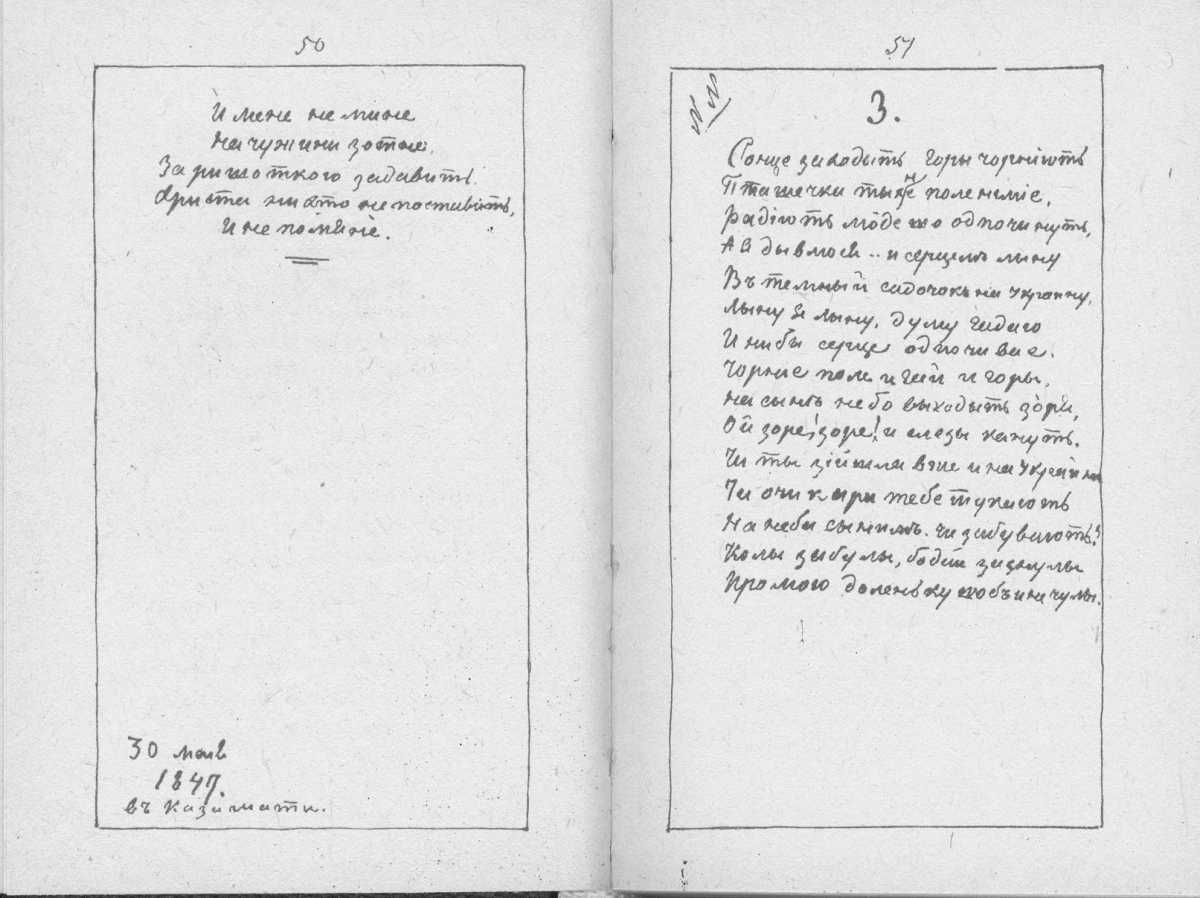 50
И мене не мине
На чужини зотне,
За ришоткою задавить.
Христа никто не поставить,
И не помъяне.
30 мая
1847.
въ казиматі.
51
N N
3.
Сонце заходыть горы чорніють
Пташечка тыхне поле німіе,
Радіють люде що одпочинуть,
А я дывлюся.. и серцемъ лыну
Въ темный садочокъ на Украину.
Лыну я лыну, думу гадаю
И ниби серце одпочивае.
Чорніе поле и гай и горы,
На сынѣ небо выходыть зоря,
Ой зоре! зоре! и слезы кануть.
Чи ты зійшла вже и на Украйни
Чи очи кари тебе шукають
На неби сынимъ. Чи забувають?
Колы забулы, бодай заснулы
Про мою доленьку щобъ и не чулы.